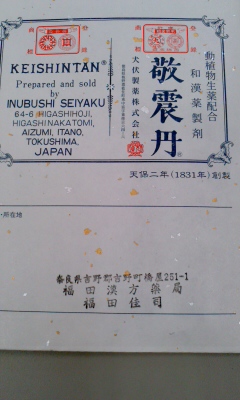 KEISHINTAN®
Prepared and sold
by
INUBUSHI SEIYAKU
64-6 HIGASHIHOJI,
HIGASHINAKATOMI,
AIZUMI, ITANO,
TOKUSHIMA,
JAPAN
動植物生薬配合
和漢薬製剤
敬震丹®
犬伏製薬株式会社
天保二年(1831年)創製
所在地
奈良県吉野郡吉野町橋屋251-1
福田漢方薬局
福田佳司